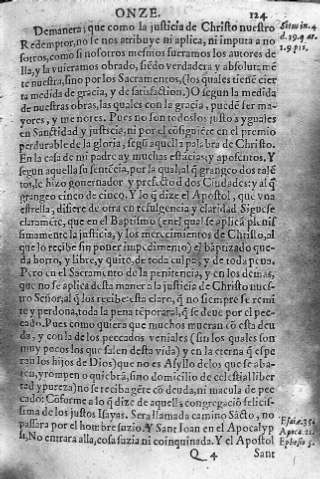 ONZE. 124
Demanera, que como la justicia de Christo nuestro
Redemptor, no se nos atribuye ni aplica, ni imputa a no
sotros, como si nosotros mesmos fueramos los autores de
lla, y la vuieramos obrado, siēdo verdadera y absolutamē
te nuestra, sino por los Sacramentos, (los quales tienē cier
ta medida de gracia, y de satisfaction.) O segun la medida
de nuestras obras, las quales con la gracia, puedē ser ma
yores, y menores. Pues no son todos los justos yguales
en Sanctidad y justicia, ni por el cōsiguiēte en el premio
perdurable de la gloria, segū aquella palabra de Christo.
En la casa de mi padre ay muchas estācias, y aposentos. Y
segun aquella su sentēcia, por la qual al q̄ grangeo dos talē
tos, le hizo gouernador y prefecto de dos Ciudades: y al q̄
grangeo cinco de cinco. Y lo q̄ dize el Apostol, que vna
estrella, difiere de otra en refulgencia y claridad. Siguese
claramēte, que en el Baptismo (en el qual se aplica plenis
simamente la justicia, y los merecimientos de Christo, al
que lo recibe sin poner impedimento) el baptizado que
da horro, y libre, y quito, de toda culpa, y de toda pena.
Pero en el Sacramento de la penitencia, y en los demas,
que no se aplica desta manera la justicia de Christo nues
tro Señor, al q̄ los recibe esta claro, q̄ no siempre se remi
te y perdona, toda la pena temporal, q̄ se deue por el pec
cado. Pues como quiera que muchos mueran cō esta deu
da, y con la de los peccados veniales (sin los quales son
muy pocos los que salen desta vida) y en la eterna q̄ espe
ran los hijos de Dios) que no es Asyllo delos que se aba
ten, y rompen o quiebrā, sino domicilio de celestial liber
tad y pureza) no se reciba gēte cō deuda, ni macula de pec
cado: Cōforme a lo q̄ dize de aquella congregaciō felicis
sima de los justos Isayas. Sera llamada camino Sācto, no
passara por el hombre suzio. Y Sant Ioan en el Apocalyp
si, No entrara alla, cosa suzia ni coinquinada. Y el Apostol
Q 4 Sant
Esaie.35.
Apoca.21.
Ephesio.5.